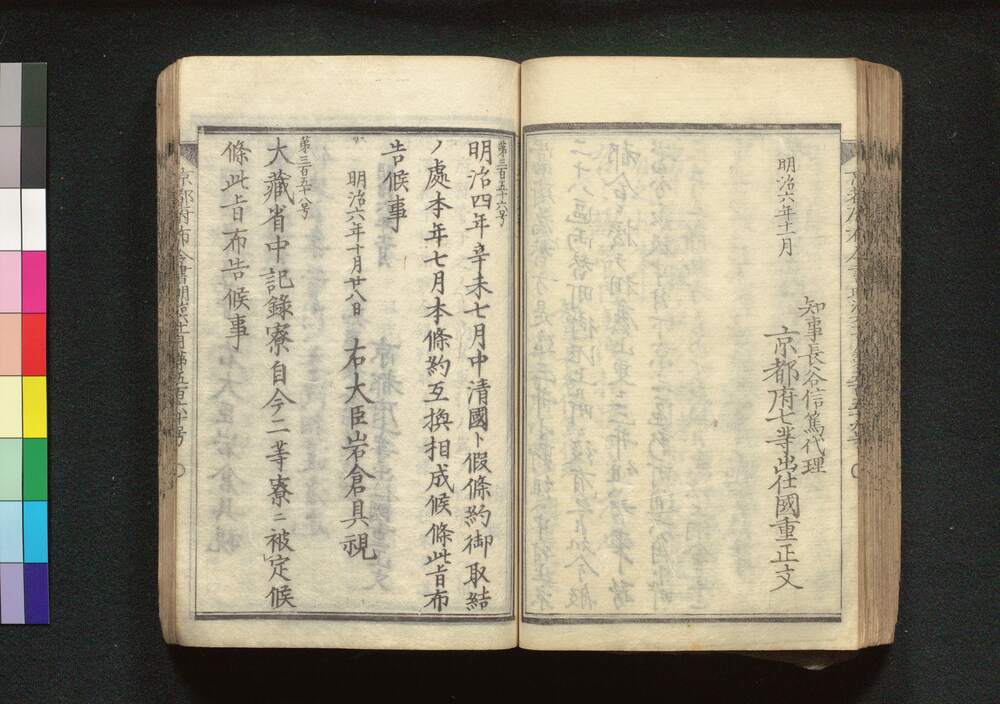 明治六年十一月
知事長谷信篤代理
京都府七等出仕國重正文
第三百五十六号
明治四年辛未七月中清國ト假條約御取結
ノ處本年七月本條約互換相成候條此旨布
告候事
明治六年十月廿八日 右大臣岩倉具視
第三百五十八号
大藏省中記錄寮自今二等寮ニ被定候
條此旨布告候事